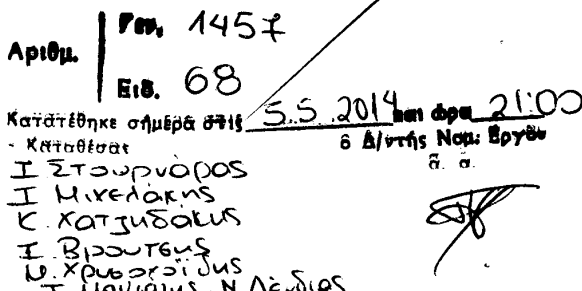 Αριθμ.
Γεν. 1457
Ειδ. 68
Κατατέθηκε σήμερα στις 5.5.2014 και ώρα 21:00
- Καταθέσας
ο Δ/ντής Νομ. Έργου
α. α.
Ι Στουρνάρας
Ι Μιχελάκης
Κ. Χατζηδάκης
Ι. Βρούτσης
Μ. Χρυσοχοΐδης
Ι. Μανιάτης, Ν. Δένδιας